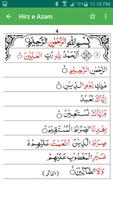 11:16 PM
Hirz e Azam
4
بِسْمِ اللهِ الرَّحْمٰنِ الرَّحِيْمِ
اَلْحَمْدُ لِلّٰهِ رَبِّ الْعٰلَمِيْنَ
الرَّحْمٰنِ الرَّحِيْمِ مٰلِكِ يَوْمِ الدِّيْنِ
اِيَّاكَ نَعْبُدُ وَ
اِيَّاكَ نَسْتَعِيْنُ اِهْدِنَا
الصِّرَاطَ الْمُسْتَقِيْمَ صِرَاطَ
الَّذِيْنَ اَنْعَمْتَ عَلَيْهِمْ
غَيْرِ الْمَغْضُوْبِ عَلَيْهِمْ
وَلَا الضَّآلِّيْنَ (الفاتحة)